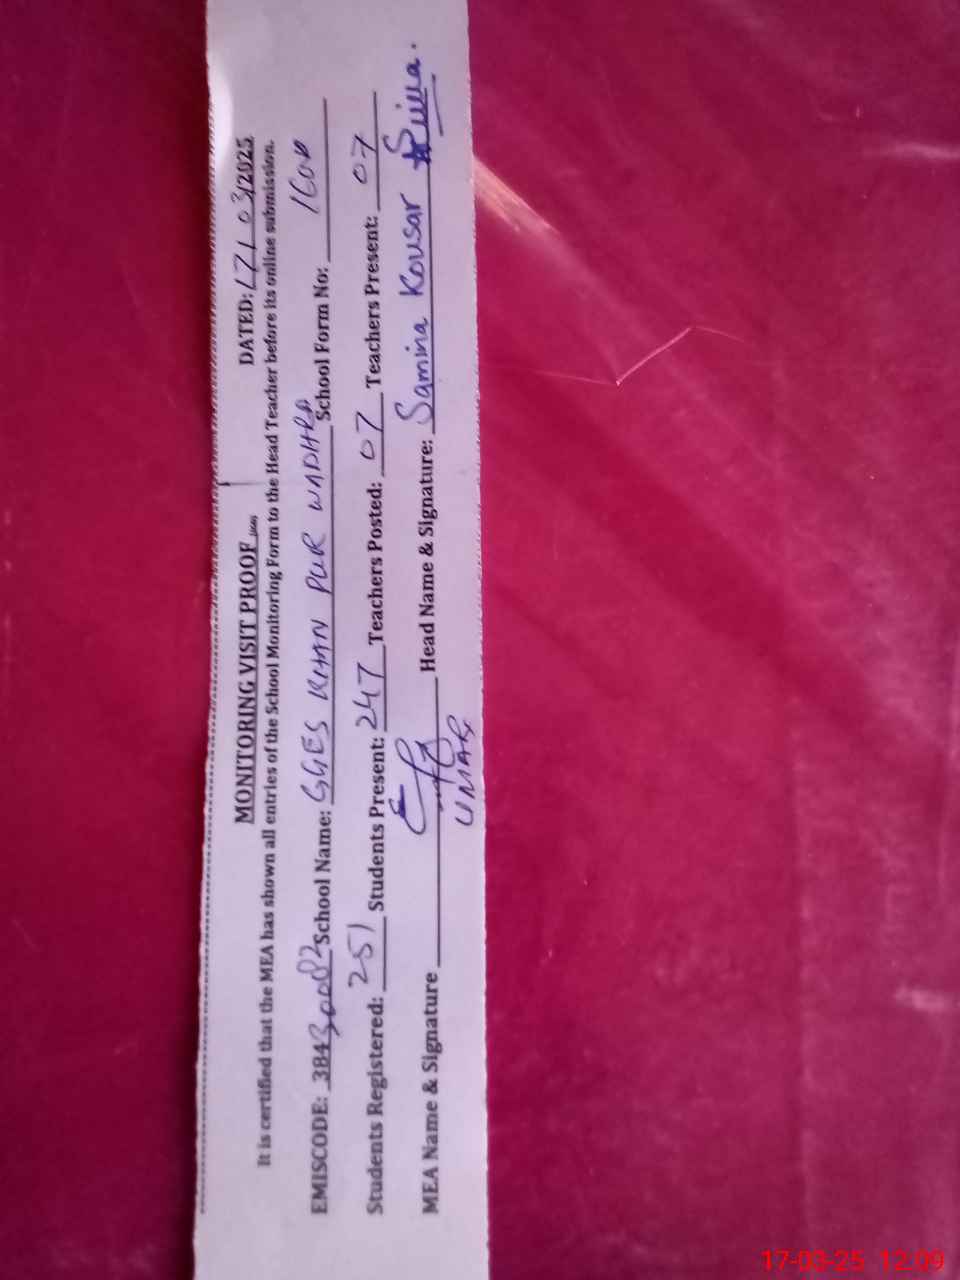 MONITORING VISIT PROOF DATED: 17/03/2025
It is certified that the MEA has shown all entries of the School Monitoring Form to the Head Teacher before its online submission.
EMISCODE: 38430082 School Name: GGES KHAN PUR WADHRA School Form No:
Students Registered: 251 Students Present: 247 Teachers Posted: 07 Teachers Present: 07
MEA Name & Signature Head Name & Signature: Samina Kousar
UMAR
17-03-25 12:09